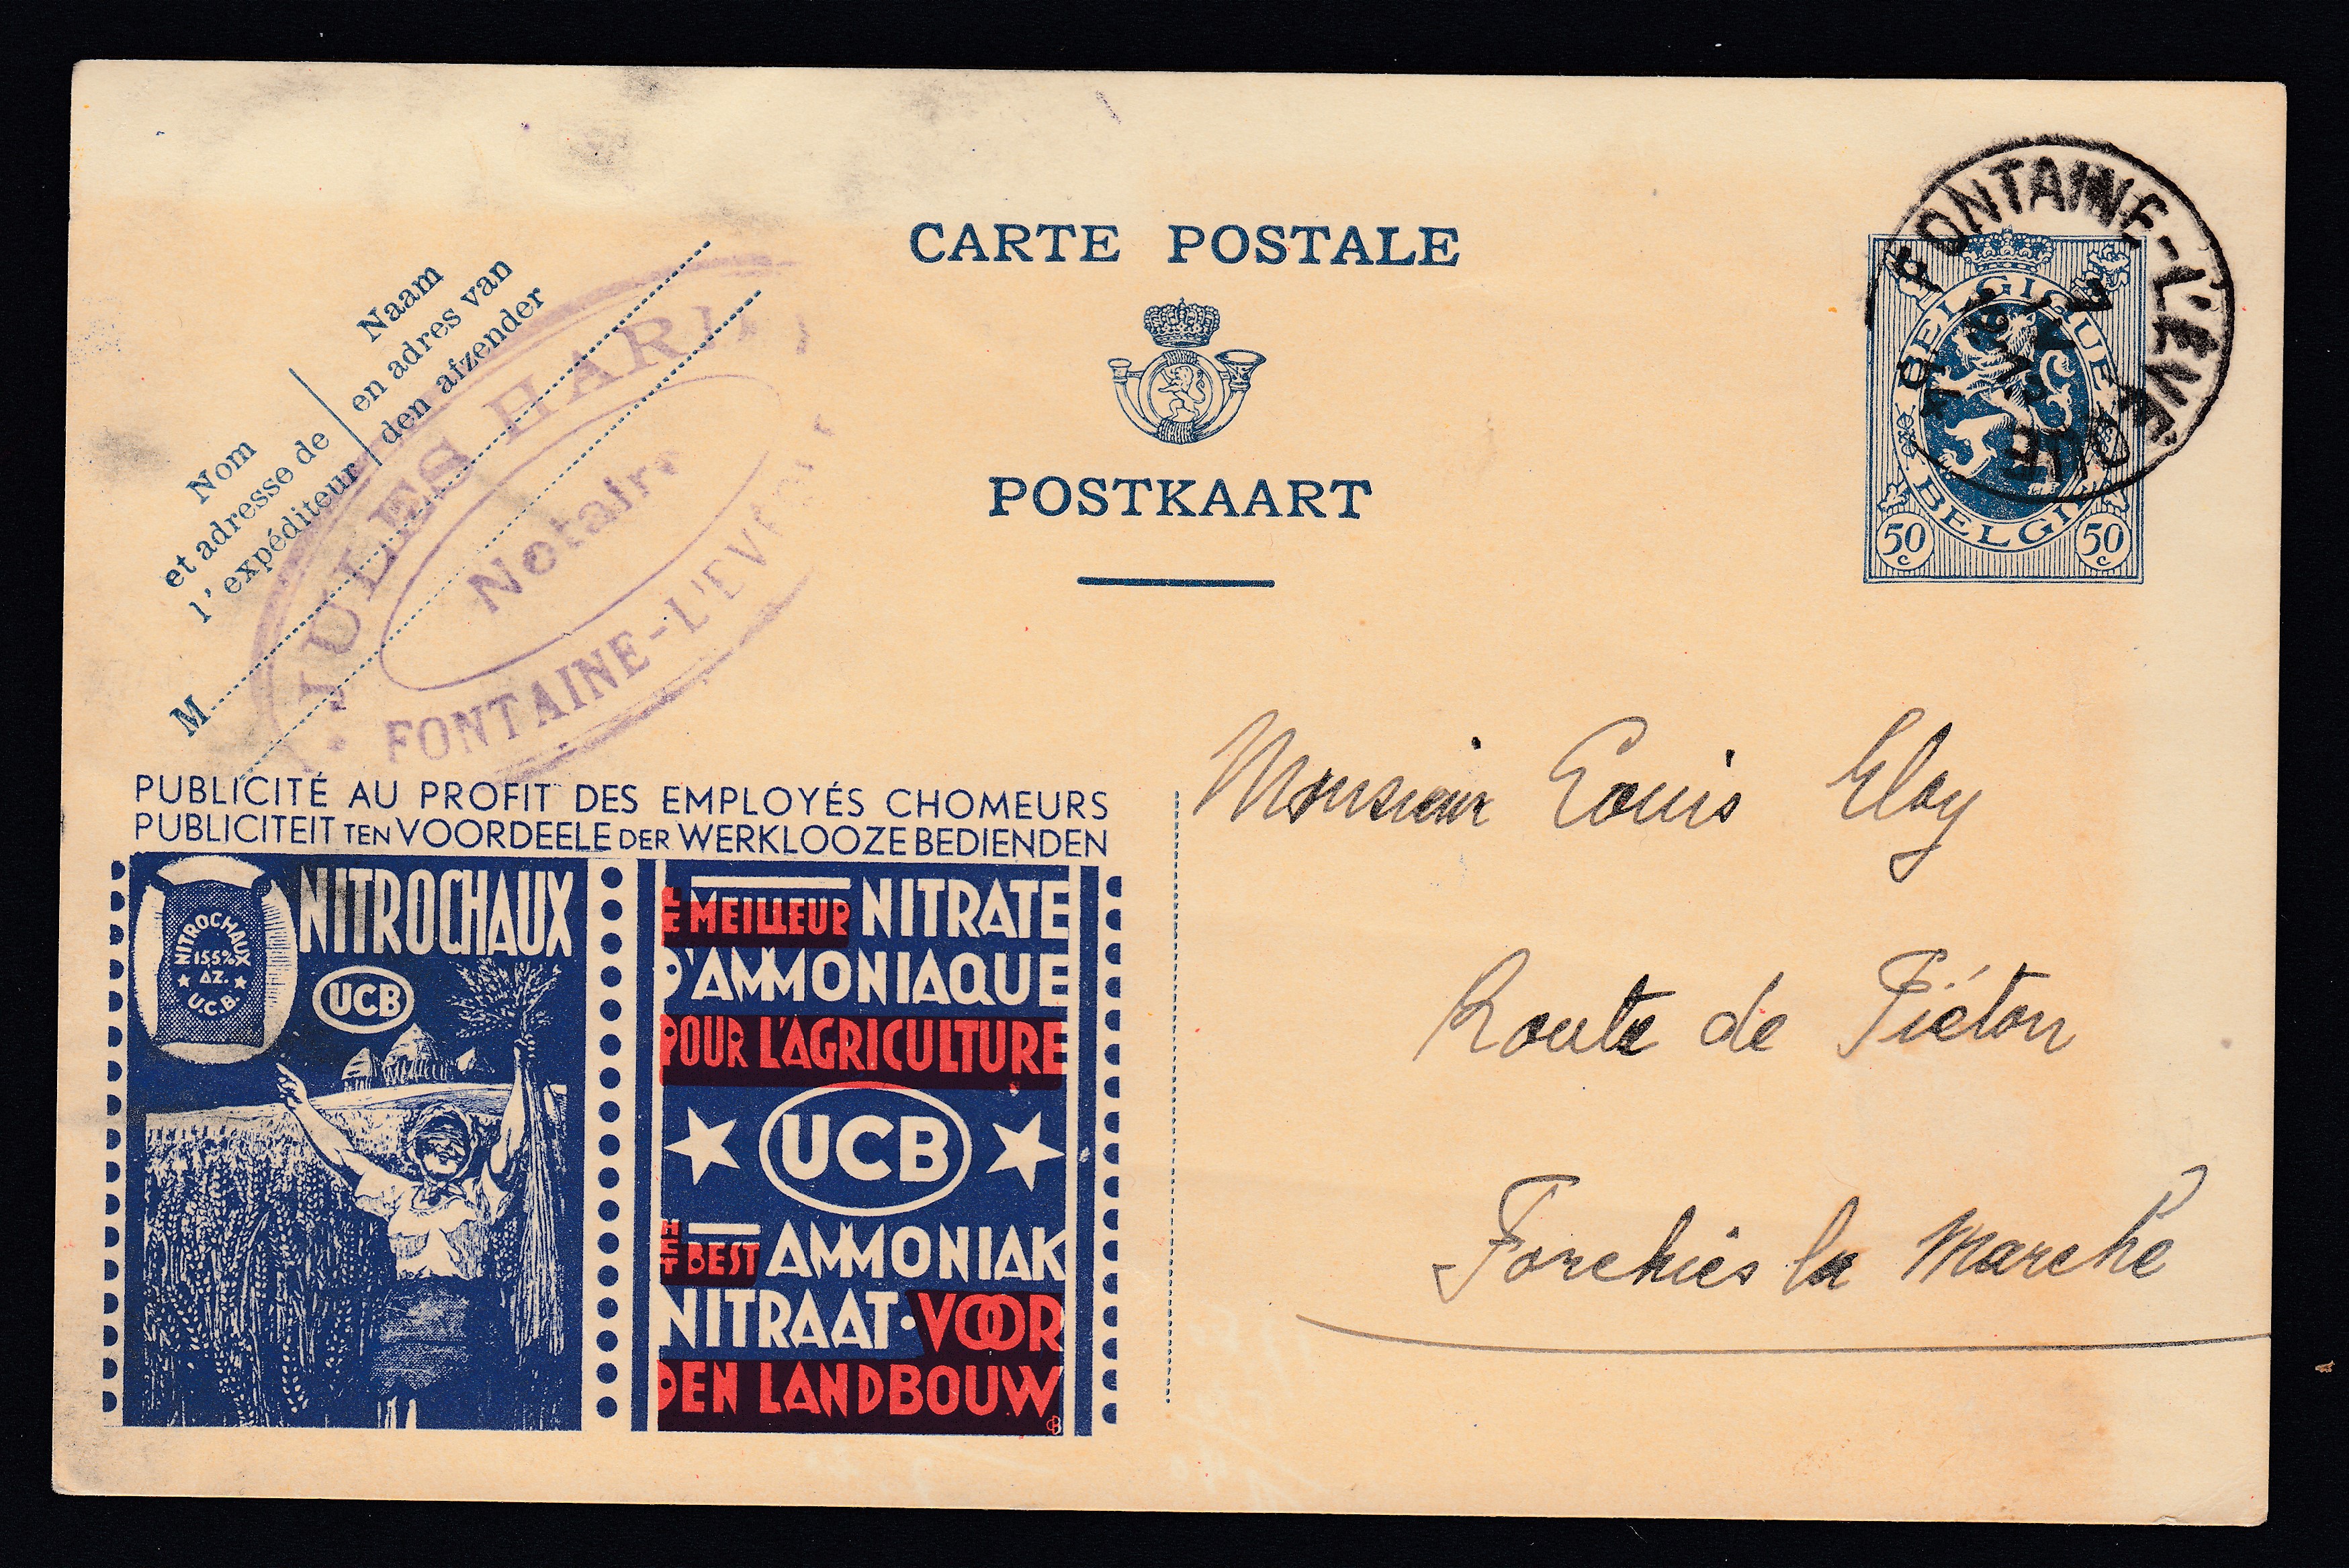 CARTE POSTALE
POSTKAART
Nom
et adresse de
l'expéditeur
Naam
en adres van
den afzender
M
JULES
Notaire
FONTAINE-L'EVEQUE
FONTAINE-L'EVE
BELGIQUE
BELGIË
50 c
50 c
PUBLICITÉ AU PROFIT DES EMPLOYÉS CHOMEURS
PUBLICITEIT TEN VOORDEELE DER WERKLOOZE BEDIENDEN
NITROCHAUX
15.5%
AZ.
U.C.B.
NITROCHAUX
UCB
LE MEILLEUR NITRATE
D'AMMONIAQUE
POUR L'AGRICULTURE
UCB
HET BEST AMMONIAK
NITRAAT·VOOR
DEN LANDBOUW
Monsieur Louis Eloy
Route de Piéton
Forchies la Marche